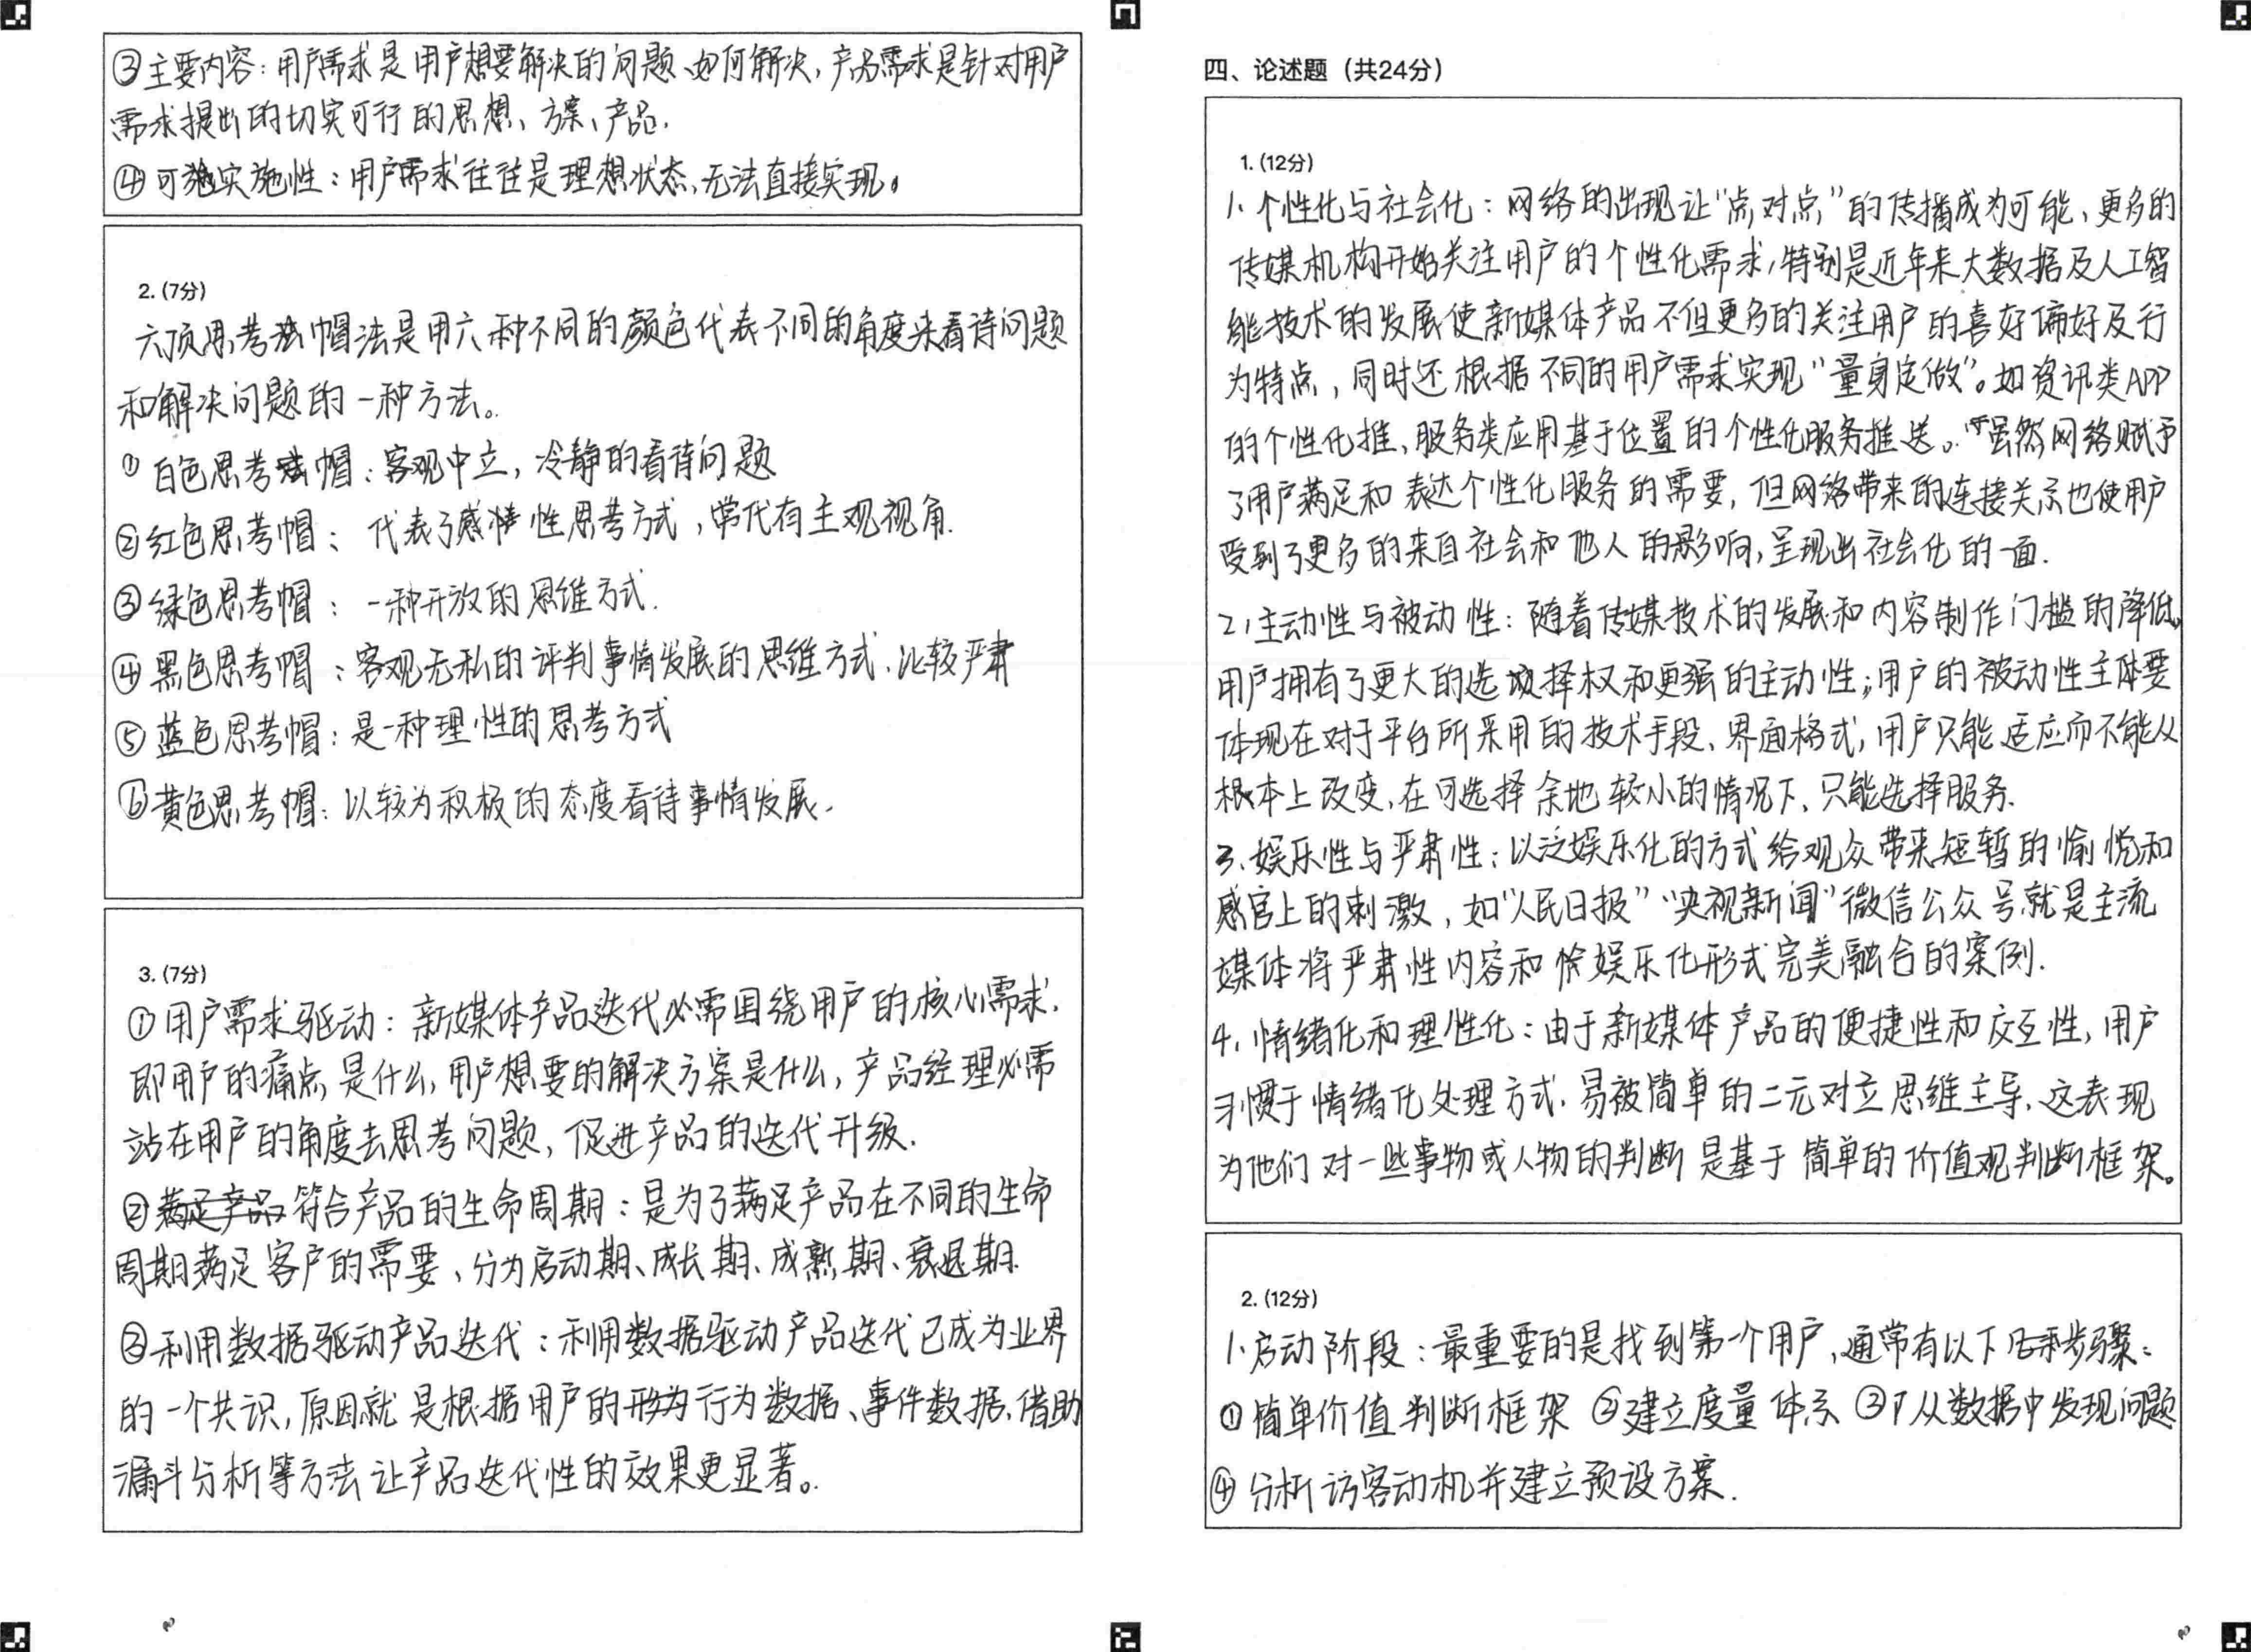 ③主要内容：用户需求是用户想要解决的问题、如何解决，产品需求是针对用户
需求提出的切实可行的思想、方案、产品.
④可实施性：用户需求往往是理想状态，无法直接实现。
2. (7分)
六顶思考帽法是用六种不同的颜色代表不同的角度来看待问题
和解决问题的一种方法。
①白色思考帽：客观中立，冷静的看待问题
②红色思考帽：代表了感情性思考方式，常代有主观视角.
③绿色思考帽：一种开放的思维方式.
④黑色思考帽：客观无私的评判事情发展的思维方式，比较严肃
⑤蓝色思考帽：是一种理性的思考方式
⑥黄色思考帽：以较为积极的态度看待事情发展.
3. (7分)
①用户需求驱动：新媒体产品迭代必需围绕用户的核心需求.
即用户的痛点是什么，用户想要的解决方案是什么，产品经理必需
站在用户的角度去思考问题，促进产品的迭代升级.
②满足产品符合产品的生命周期：是为了满足产品在不同的生命
周期满足客户的需要，分为启动期、成长期、成熟期、衰退期.
③利用数据驱动产品迭代：利用数据驱动产品迭代已成为业界
的一个共识，原因就是根据用户的行为数据、事件数据，借助
漏斗分析等方法让产品迭代性的效果更显著。
四、论述题（共24分）
1. (12分)
1、个性化与社会化：网络的出现让“点对点”的传播成为可能，更多的
传媒机构开始关注用户的个性化需求，特别是近年来大数据及人工智
能技术的发展使新媒体产品不但更多的关注用户的喜好偏好及行
为特点，同时还根据不同的用户需求实现“量身定做”。如资讯类APP
的个性化推、服务类应用基于位置的个性化服务推送。虽然网络赋予
了用户满足和表达个性化服务的需要，但网络带来的连接关系也使用户
受到了更多的来自社会和他人的影响，呈现出社会化的一面.
2、主动性与被动性：随着传媒技术的发展和内容制作门槛的降低，
用户拥有了更大的选择权和更强的主动性；用户的被动性主体要
体现在对于平台所采用的技术手段、界面格式，用户只能适应而不能从
根本上改变，在可选择余地较小的情况下，只能选择服务.
3、娱乐性与严肃性：以泛娱乐化的方式给观众带来短暂的愉悦和
感官上的刺激，如“人民日报”“央视新闻”微信公众号就是主流
媒体将严肃性内容和娱乐化形式完美融合的案例.
4、情绪化和理性化：由于新媒体产品的便捷性和交互性，用户
习惯于情绪化处理方式，易被简单的二元对立思维主导，这表现
为他们对一些事物或人物的判断是基于简单的价值观判断框架。
2. (12分)
1、启动阶段：最重要的是找到第一个用户，通常有以下步骤：
①简单价值判断框架 ②建立度量体系 ③从数据中发现问题
④分析访客动机并建立预设方案.